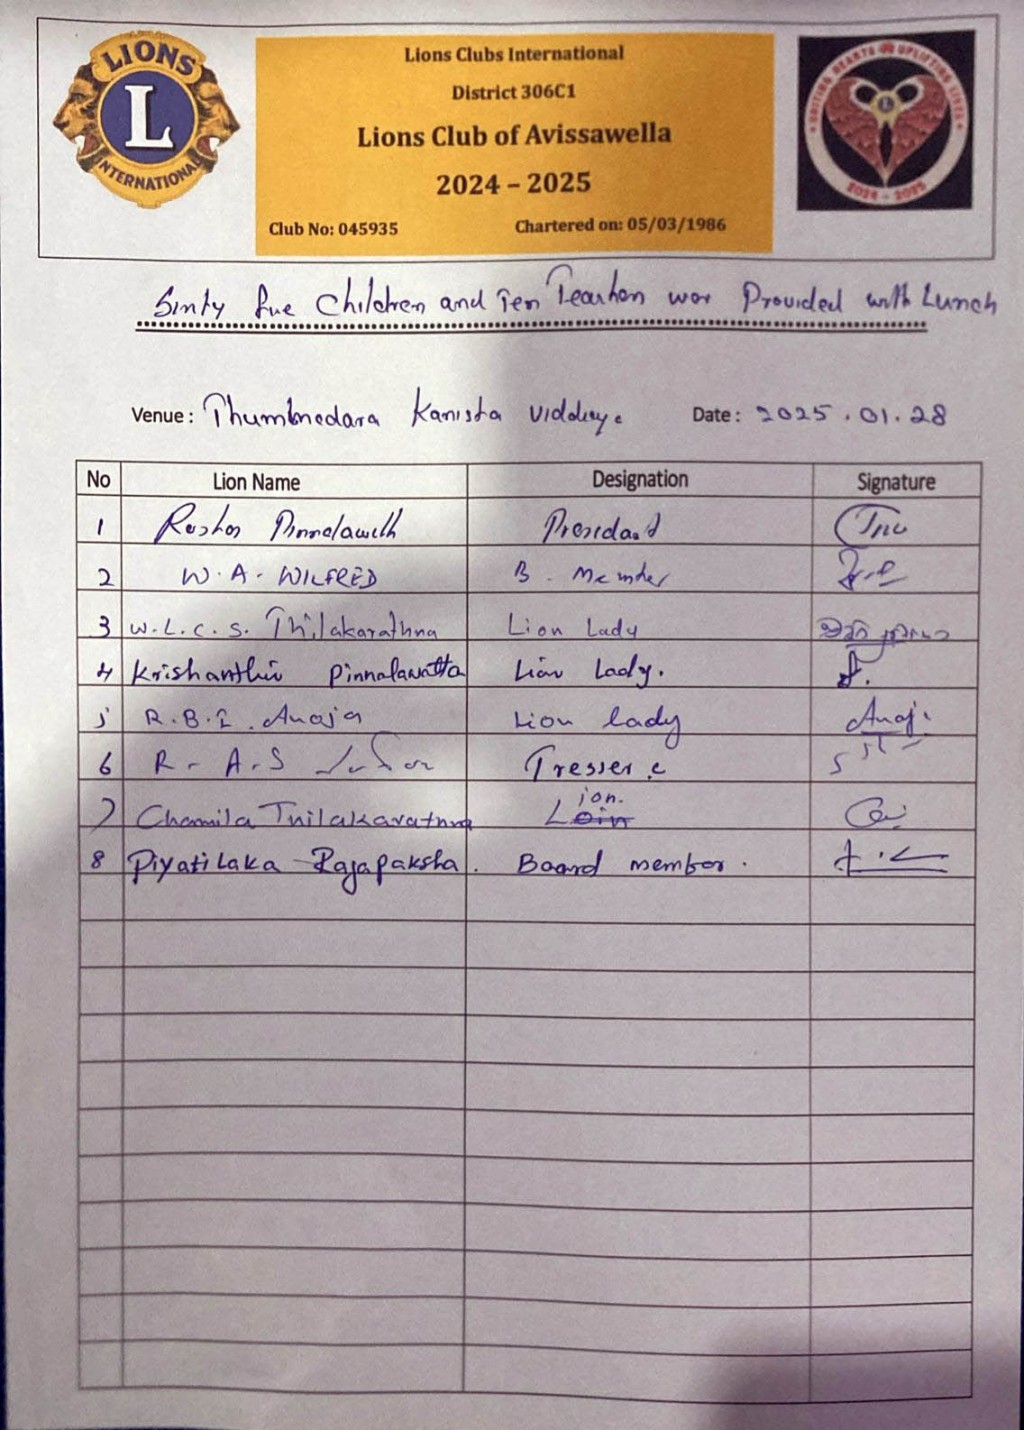 LIONS
L
INTERNATIONAL
Lions Clubs International
District 306C1
Lions Club of Avissawella
2024 – 2025
Club No: 045935 Chartered on: 05/03/1986
UNITING HEARTS UPLIFTING LIVES
2024 - 2025
Children and Ten Provided with Lunch
Venue : Kanista Date : 2025.01.28
No Lion Name Designation Signature
1
2 W.A. WILFRED B. Member
3 W.L.C.S. Thilakarathna Lion Lady
4 Krishanthi Pinnalawatta Lion Lady.
5 R.B.I. Anoja Lion lady Anoj
6 R. A. S
7 Chamila Thilakarathna Loin ion.
8 Piyatilaka Rajapaksha. Board member.